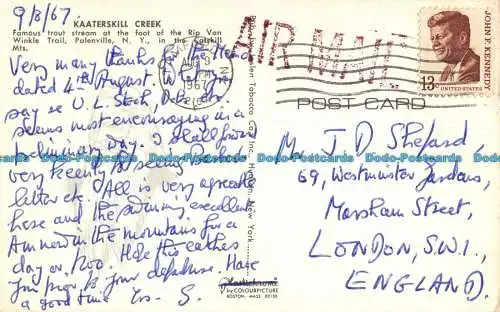 9/8/67.
KAATERSKILL CREEK
Famous trout stream at the foot of the Rip Van
Winkle Trail, Palenville, N. Y., in the Catskill
Mts.
Very many thanks for the
dated 4th August. What you
say re U.L. Stock,
seems most encouraging in a
preliminary day. I shall
very keenly to seeing
letter etc. All is very agreeable
here and the swimming excellent.
Am now in the mountains for a
day or two. Hope this catches
you prior to your departure. Have
a good time Yrs. S.
Tobacco Co., Inc., New York
Plastichrome
by COLOURPICTURE
BOSTON, MASS. 02130
AUG 9
PM
1967
AIR MAIL
JOHN F. KENNEDY
13c
UNITED STATES
POST CARD
Mr J D Shepard,
69, Westminster Gardens,
Marsham Street,
LONDON, S.W.1.,
ENGLAND.
Dodo-Postcards Dodo-Postcards Dodo-Postcards Dodo-Postcards